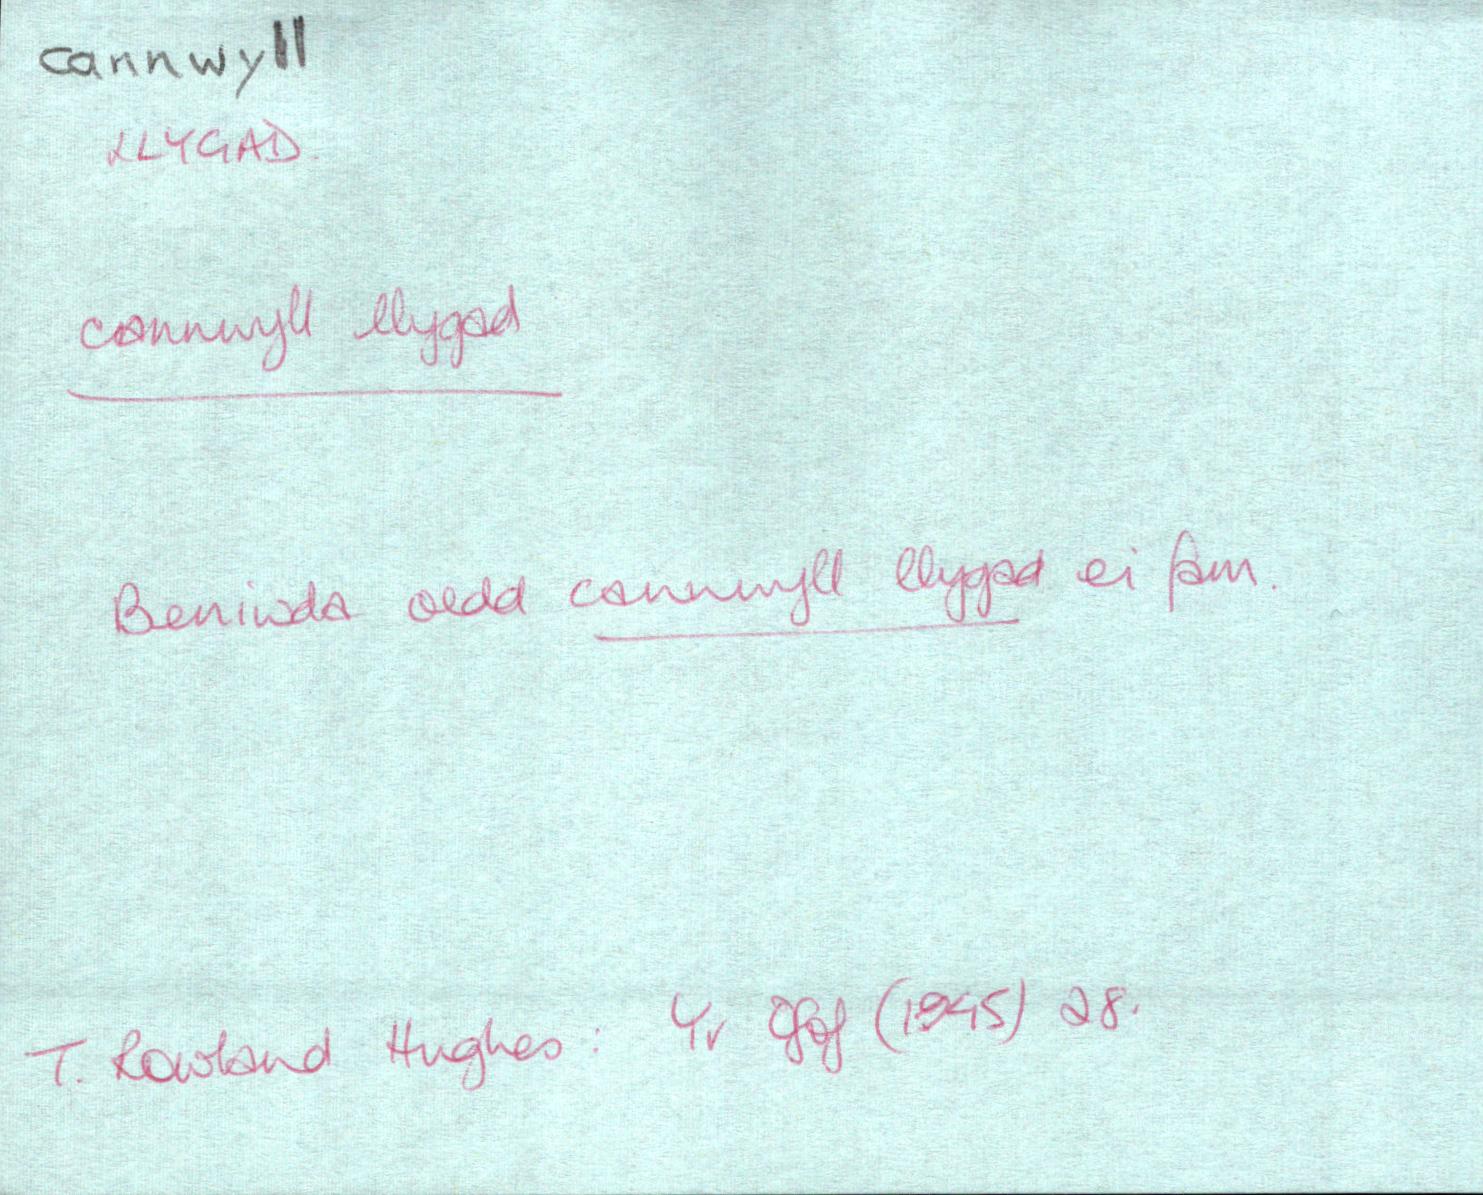 cannwyll
LLYGAD.
cannwyll llygad
Beniwda oedd cannwyll llygad ei fam.
T. Rowland Hughes: Yr Ogof (1945) 28.